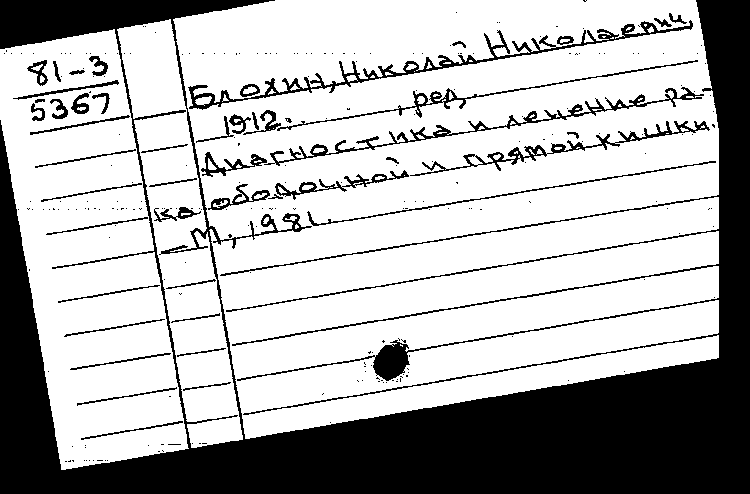 81-3
5367
Блохин, Николай Николаевич,
1912. , ред.
Диагностика и лечение ра-
ка ободочной и прямой кишки.
— М., 1981.